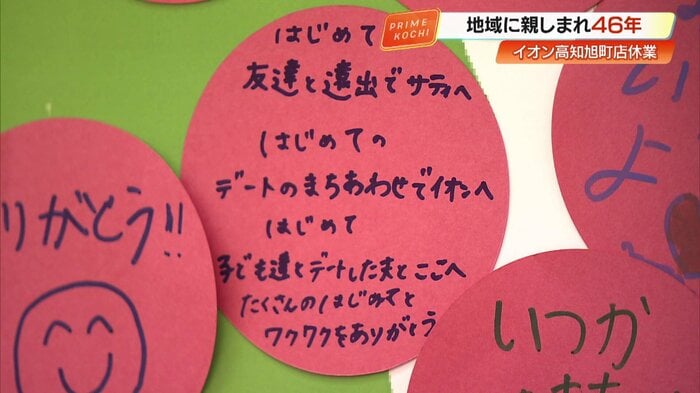 PRIME
KOCHI
地域に親しまれ46年
イオン高知旭町店休業
はじめて
友達と遠出でサティへ
はじめての
デートのまちあわせでイオンへ
はじめて
子ども達とデートした夫とここへ
たくさんのはじめてと
ワクワクをありがとう
りがとう!!
いよ
いつか